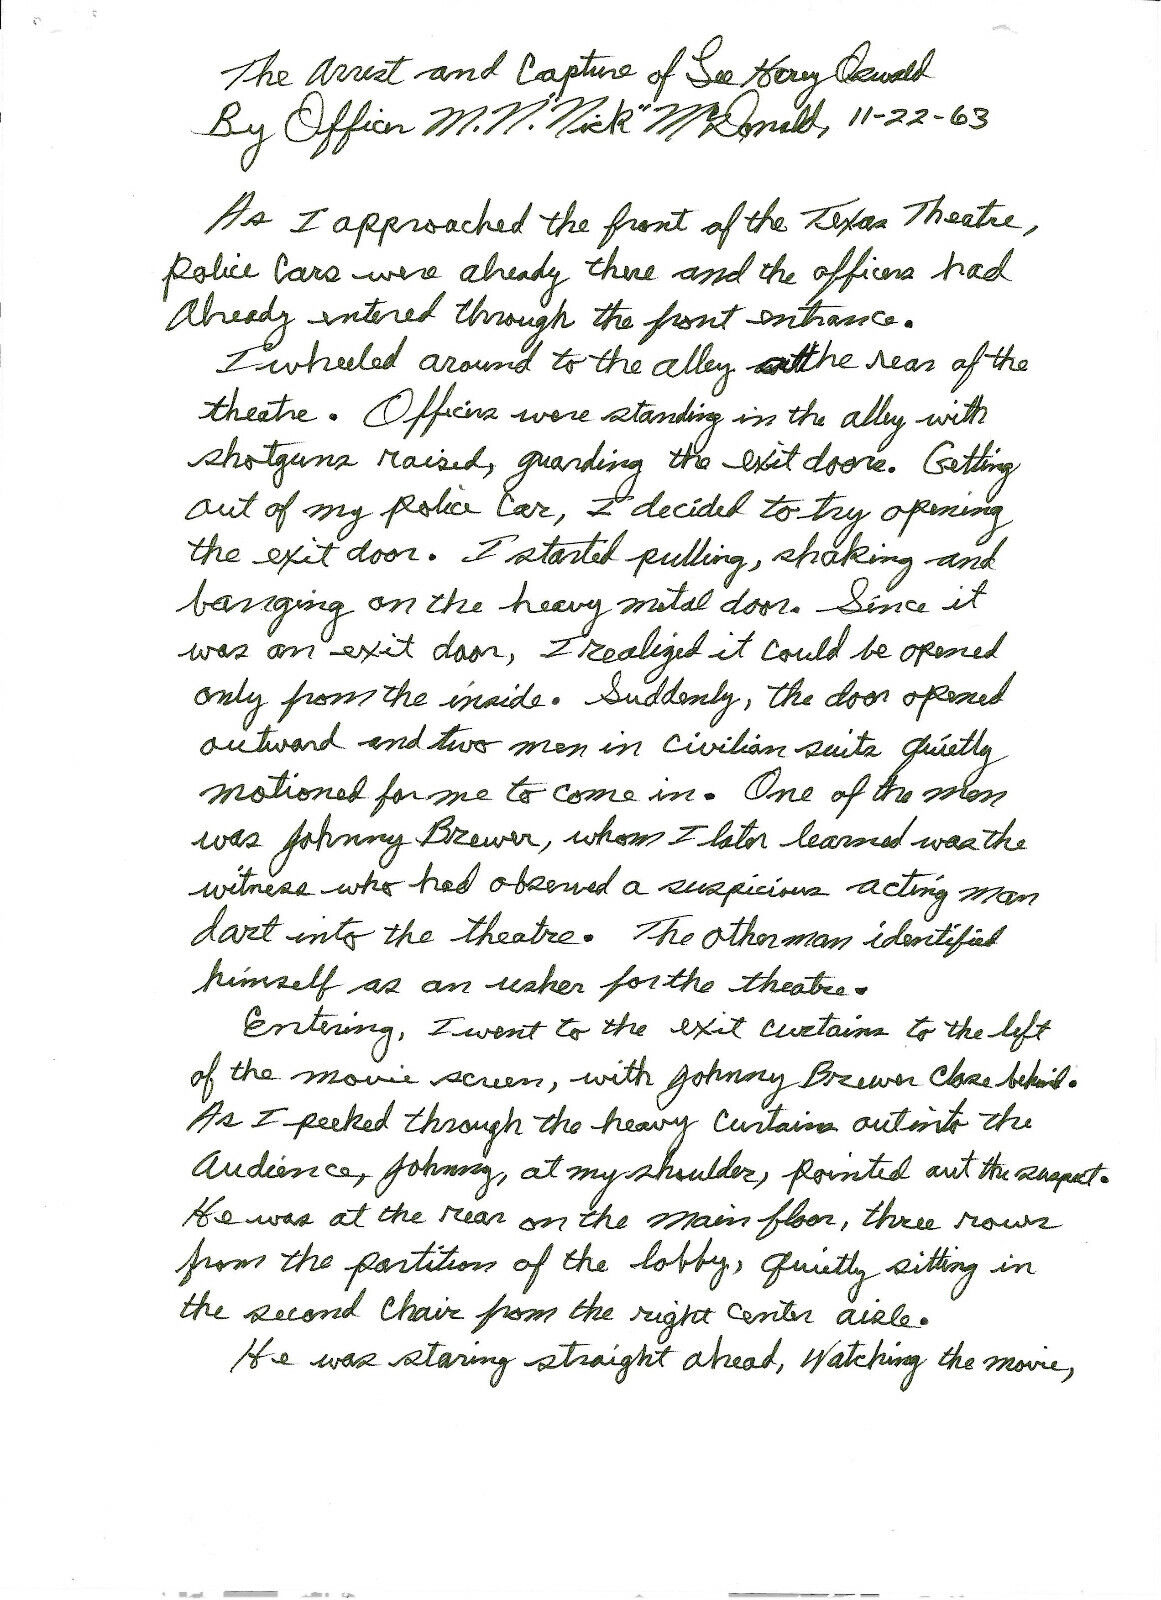 The Arrest and Capture of Lee Harvey Oswald
By Officer M.N. "Nick" McDonald, 11-22-63
As I approached the front of the Texas Theatre,
police cars were already there and the officers had
already entered through the front entrance.
I wheeled around to the alley at the rear of the
theatre. Officers were standing in the alley with
shotguns raised, guarding the exit doors. Getting
out of my police car, I decided to try opening
the exit door. I started pulling, shaking and
banging on the heavy metal door. Since it
was an exit door, I realized it could be opened
only from the inside. Suddenly, the door opened
outward and two men in civilian suits quietly
motioned for me to come in. One of the men
was Johnny Brewer, whom I later learned was the
witness who had observed a suspicious acting man
dart into the theatre. The other man identified
himself as an usher for the theatre.
Entering, I went to the exit curtains to the left
of the movie screen, with Johnny Brewer close behind.
As I peeked through the heavy curtains out into the
audience, Johnny, at my shoulder, pointed out the suspect.
He was at the rear on the main floor, three rows
from the partition of the lobby, quietly sitting in
the second chair from the right center aisle.
He was staring straight ahead, watching the movie,